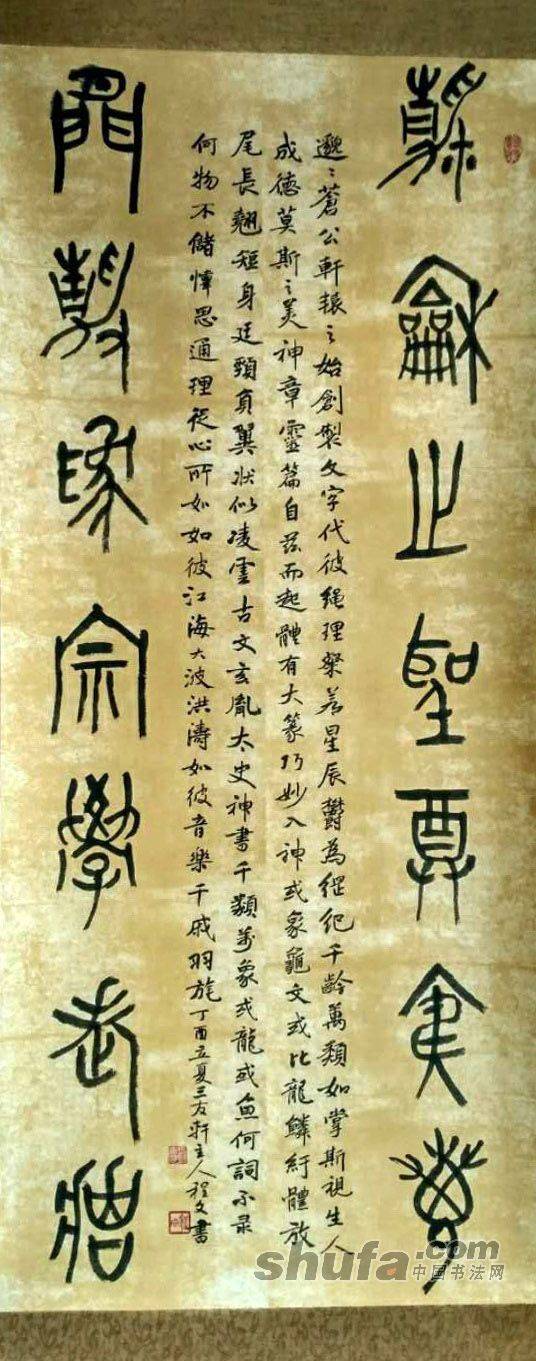 龢止聖尊
邈〻蒼公軒轅之始創製文字代彼繩理粲若星辰鬱為綱紀千齡萬類如掌斯視生人
成德莫斯之美神章靈篇自茲而起體有大篆巧妙入神或象龜文或比龍鱗紆體放
尾長翹短身廷頸負翼狀似凌雲古文玄胤太史神書千類萬象或龍或魚何詞不录
何物不儲懌思通理從心所如如彼江海大波洪濤如彼音樂干戚羽旄丁酉立夏三友軒主人程文書
象宗學
shufa.com
中国书法网